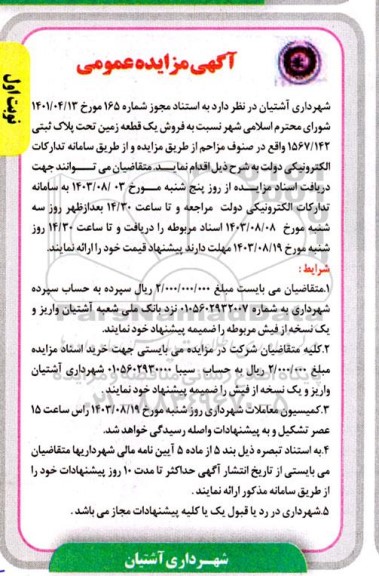 نوبت اول
آگهی مزایده عمومی
شهرداری آشتیان در نظر دارد به استناد مجوز شماره ۱۶۵ مورخ ۱۴۰۱/۰۴/۱۳
شورای محترم اسلامی شهر نسبت به فروش یک قطعه زمین تحت پلاک ثبتی
۱۵۶۷/۱۴۲ واقع در صنوف مزاحم از طریق مزایده و از طریق سامانه تدارکات
الکترونیکی دولت به شرح ذیل اقدام نماید. متقاضیان می توانند جهت
دریافت اسناد مزایده از روز پنج شنبه مورخ ۱۴۰۳/۰۸/۰۳ به سامانه
تدارکات الکترونیکی دولت مراجعه و تا ساعت ۱۴/۳۰ بعدازظهر روز سه
شنبه مورخ ۱۴۰۳/۰۸/۰۸ اسناد مربوطه را دریافت و تا ساعت ۱۴/۳۰ روز
شنبه مورخ ۱۴۰۳/۰۸/۱۹ مهلت دارند پیشنهاد قیمت خود را ارائه نمایند.
شرایط :
۱.متقاضیان می بایست مبلغ ۲/۰۰۰/۰۰۰/۰۰۰ ریال سپرده به حساب سپرده
شهرداری به شماره ۰۱۰۵۶۰۲۹۳۲۰۰۷ نزد بانک ملی شعبه آشتیان واریز و
یک نسخه از فیش مربوطه را ضمیمه پیشنهاد خود نمایند.
۲.کلیه متقاضیان شرکت در مزایده می بایستی جهت خرید اسناد مزایده
مبلغ ۲/۰۰۰/۰۰۰ ریال به حساب سیبا ۰۱۰۵۶۰۲۹۳۰۰۰۰ شهرداری آشتیان
واریز و یک نسخه از فیش را ضمیمه پیشنهاد خود نمایند.
۳.کمیسیون معاملات شهرداری روز شنبه مورخ ۱۴۰۳/۰۸/۱۹ راس ساعت ۱۵
عصر تشکیل و به پیشنهادات واصله رسیدگی خواهد شد.
۴.به استناد تبصره ذیل بند ۵ از ماده ۵ آیین نامه مالی شهرداریها متقاضیان
می بایستی از تاریخ انتشار آگهی حداکثر تا مدت ۱۰ روز پیشنهادات خود را
از طریق سامانه مذکور ارائه نمایند .
۵.شهرداری در رد یا قبول یک یا کلیه پیشنهادات مجاز می باشد .
شهرداری آشتیان